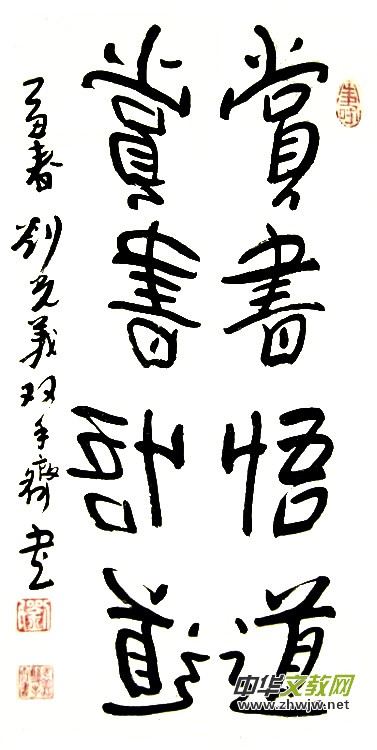 賞書悟道
賞書悟道
春 刘克義双手齋書
中华文教网
www.zhwjw.net